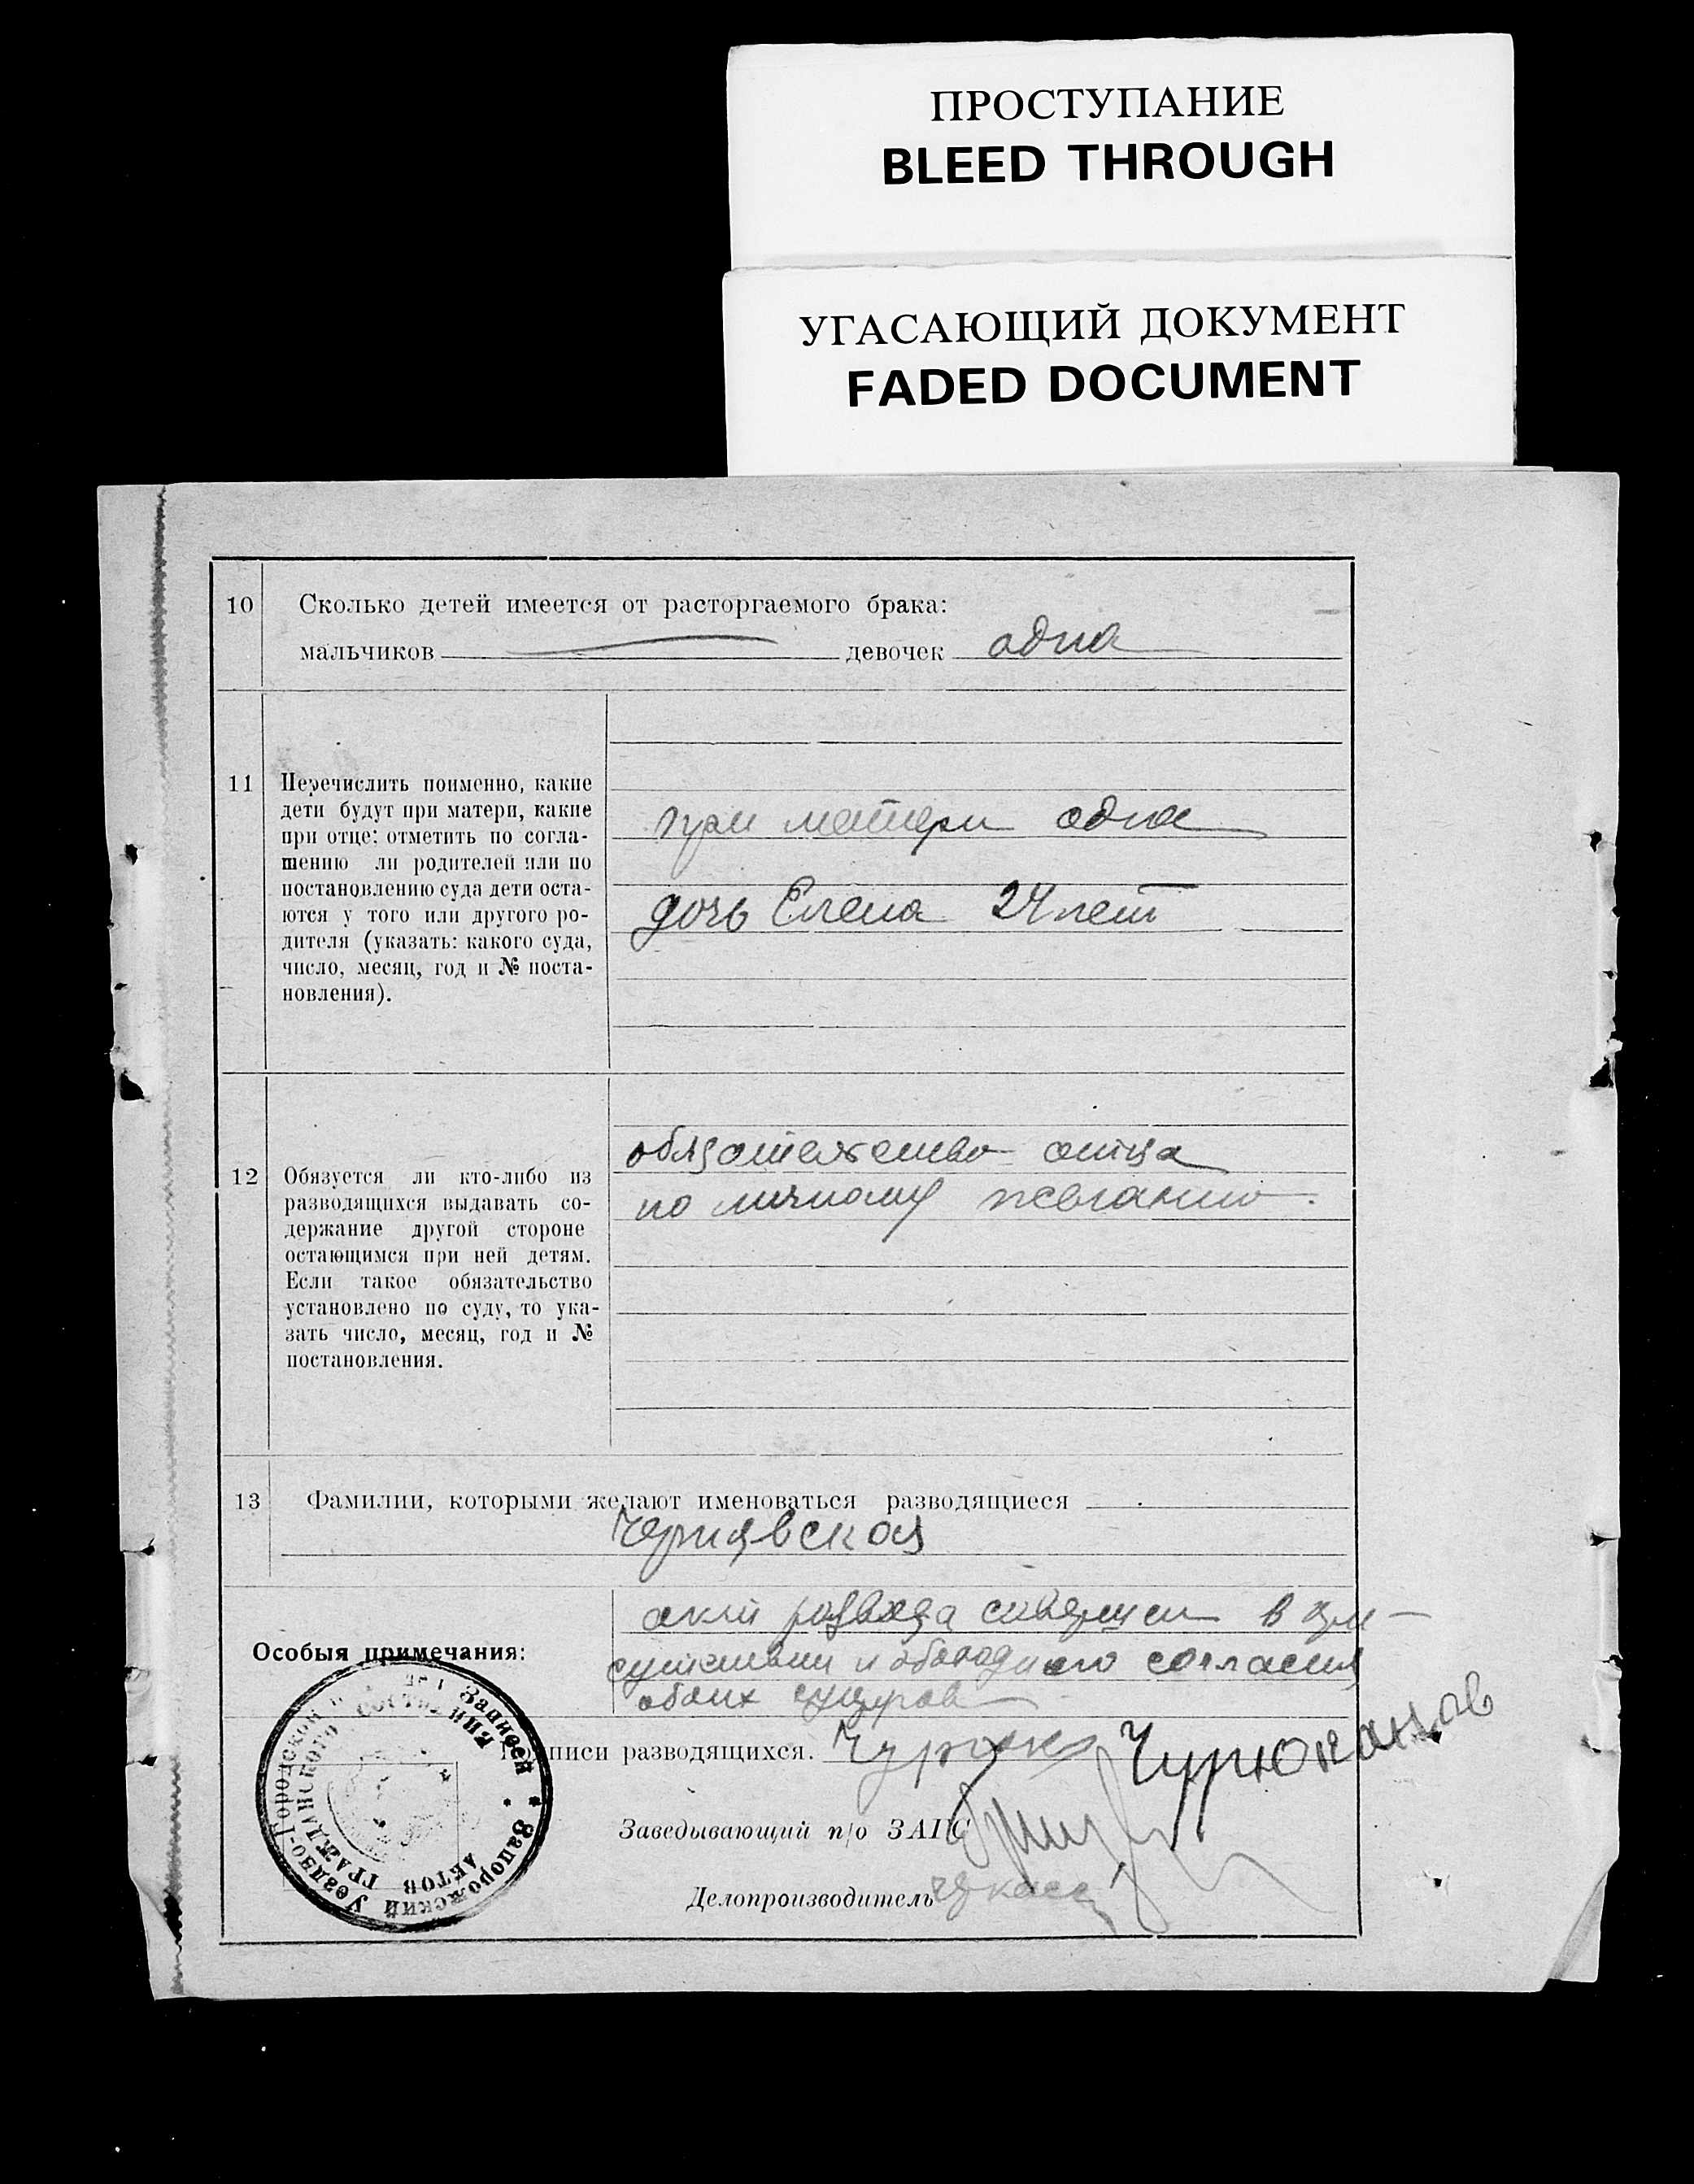 ПРОСТУПАНИЕ
BLEED THROUGH
УГАСАЮЩИЙ ДОКУМЕНТ
FADED DOCUMENT
10 Сколько детей имеется от расторгаемого брака:
мальчиков девочек одна
11 Перечислить поименно, какие
дети будут при матери, какие
при отце: отметить по согла-
шению ли родителей или по
постановлению суда дети оста-
ются у того или другого ро-
дителя (указать: какого суда,
число, месяц, год и № поста-
новления).
при матери одна
дочь Елена 24 лет
12 Обязуется ли кто-либо из
разводящихся выдавать со-
держание другой стороне
остающимся при ней детям.
Если такое обязательство
установлено по суду, то ука-
зать число, месяц, год и №
постановления.
обязательство отца
по личному желанию.
13 Фамилии, которыми желают именоваться разводящиеся
Чернявская
Особыя примечания:
акт развода совершен в при-
сутствии и обоюдного согласия
обоих
писи разводящихся.
Заведывающий п/о ЗАГС
Делопроизводитель
Запорожский Уездно-Городской Записей
АКТОВ ГРАЖДАНСКОГО СОСТОЯНИЯ